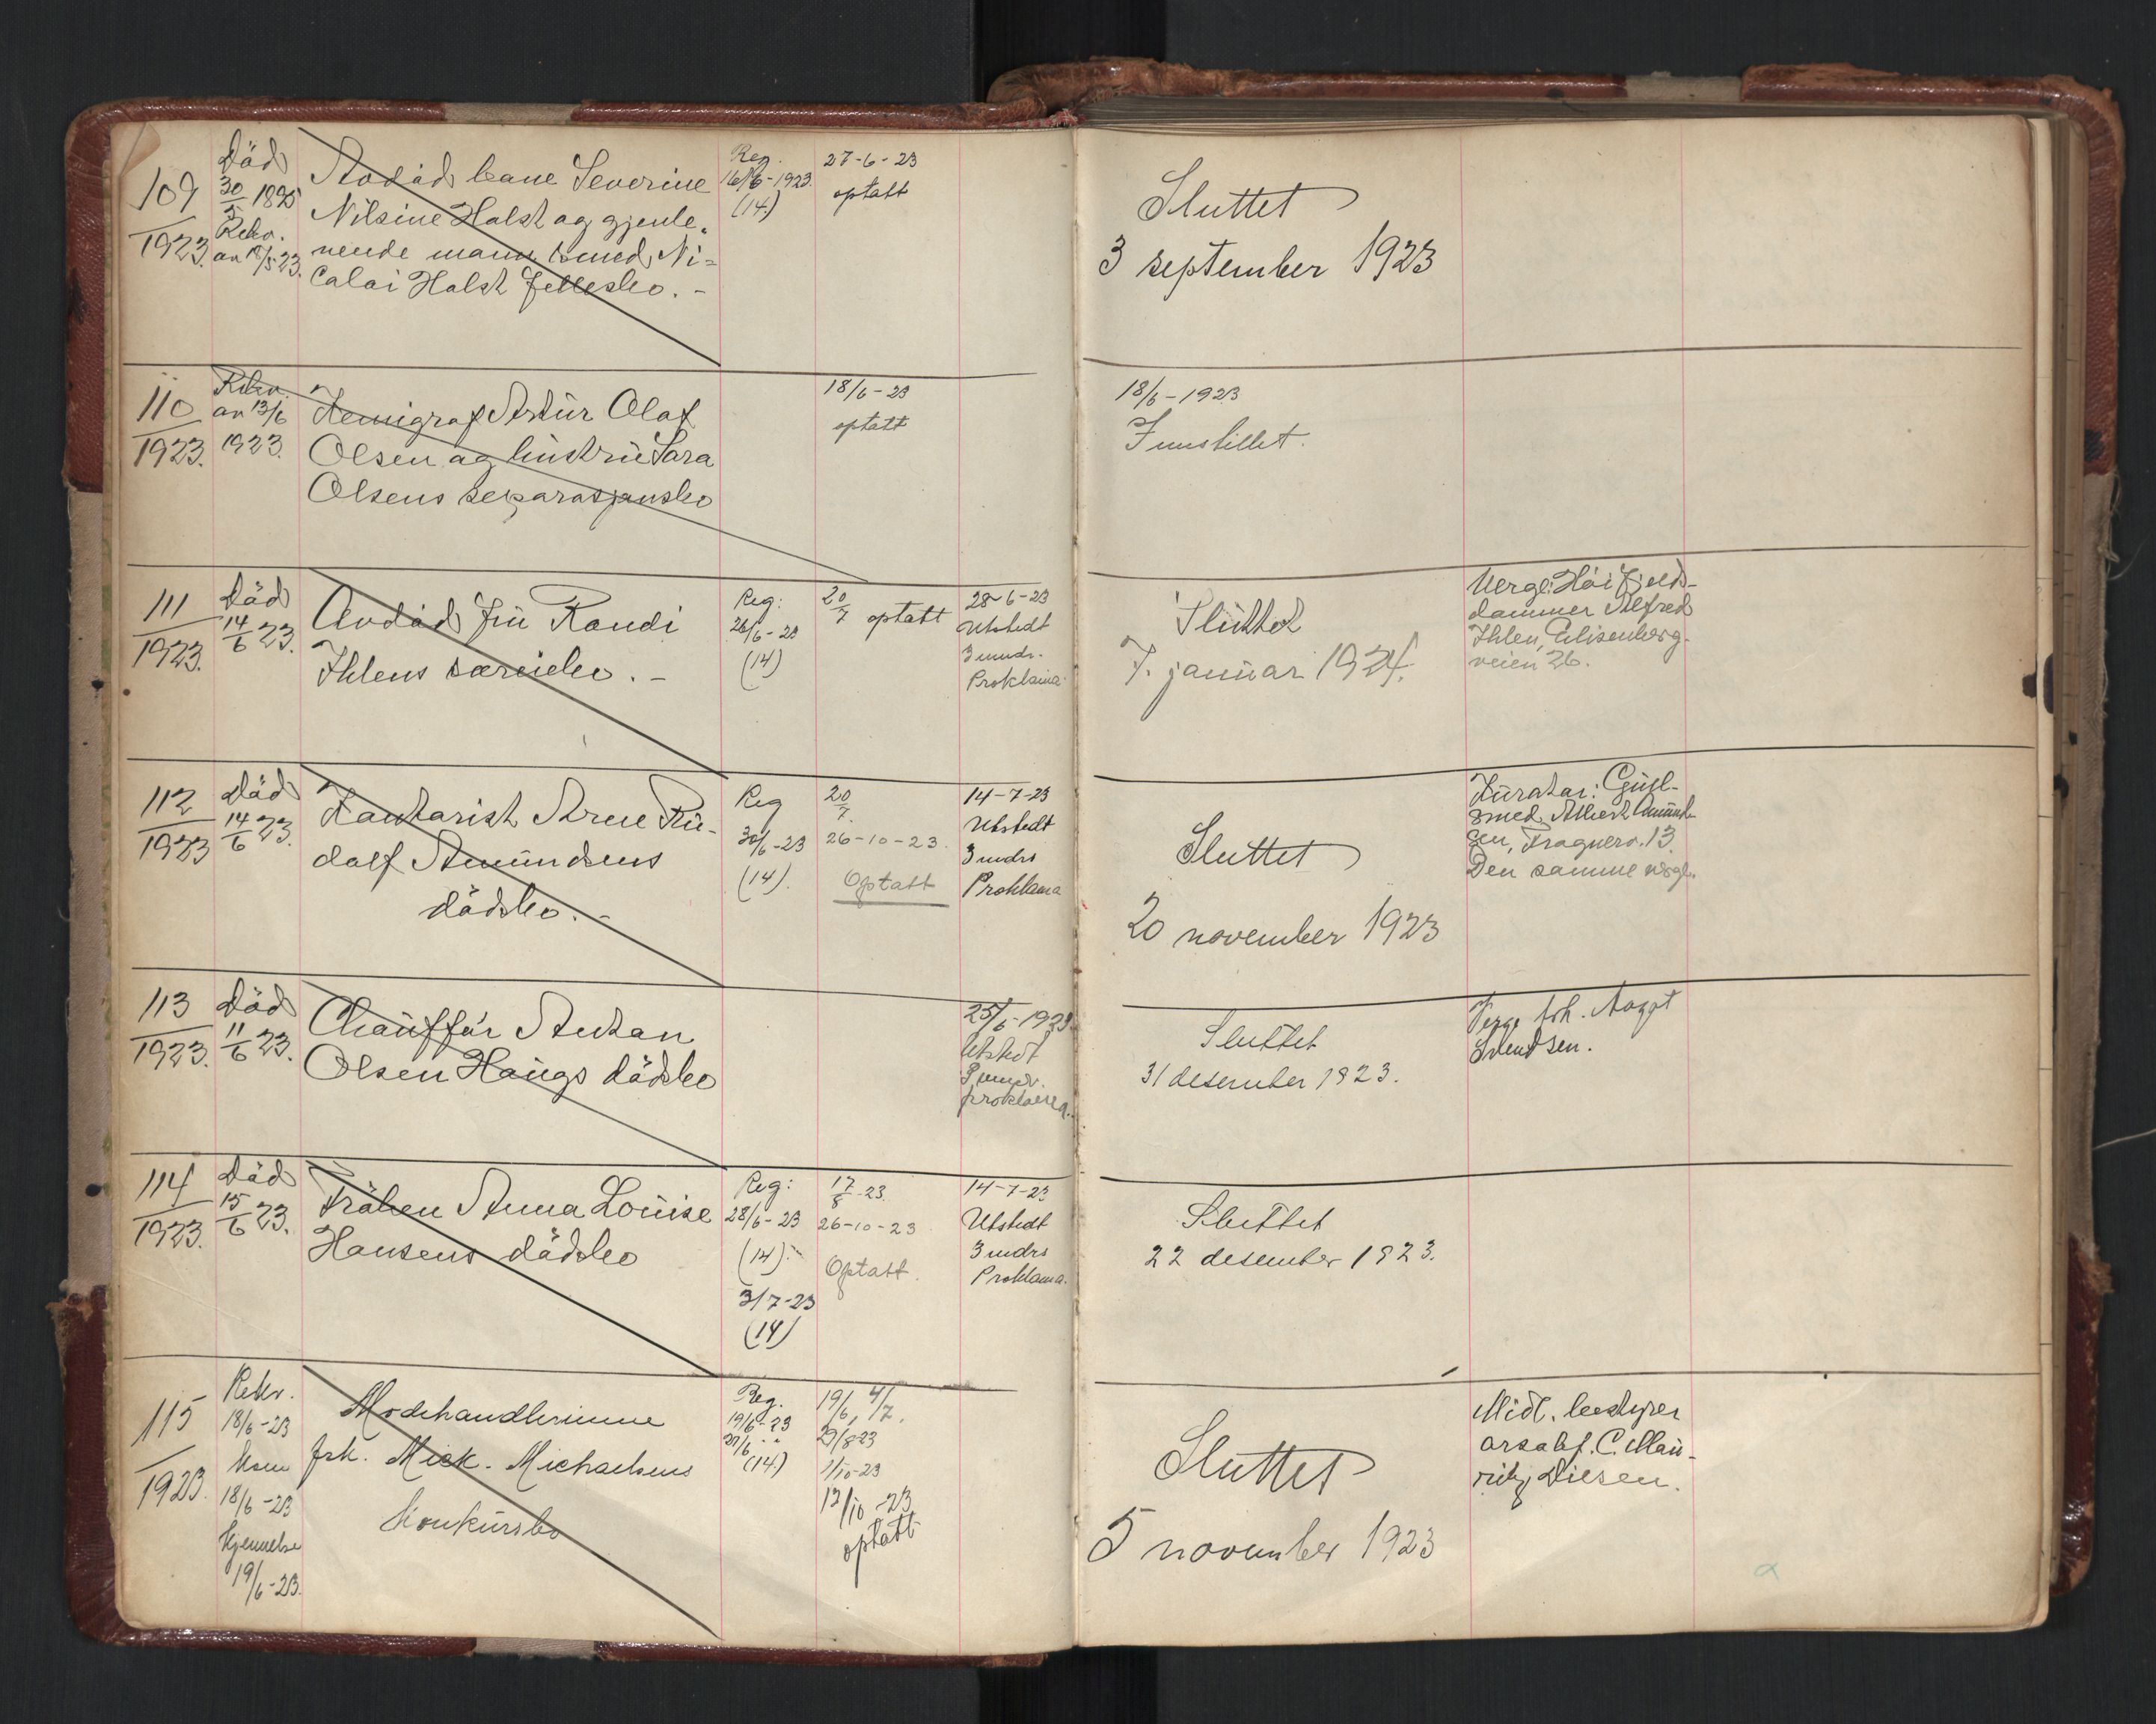 109
1923.
Död
30/5 1895
Rekv.
av 12/5 23.
Avdöd kone Severine
Nilsine Holst og gjenle-
vende mann smed Ni=
colai Holst fellesbo. -
Reg.
16/6-1923.
(14)
27-6-23
optatt
Sluttet
3 september 1923
110
1923.
Rekv.
av 13/6
1923.
Kemigraf Artur Olaf
Olsen og hustru Sara
Olsens separasjonsbo
18/6-23
optatt
18/6-1923
Innstillet.
111
1923.
Död
14/6 23.
Avdöd fru Randi
Ihlens særeiebo. -
Reg:
26/6-23
(14)
20/7 optatt
28-6-23
Utstedt
3 mndr.
Proklama.
Sluttet
7. januar 1924.
Verge: Höifjelds-
dommer Alfred
Ihlen, Elisenberg-
veien 26.
112
1923
Död
14/6 23.
Kontorist Arne Ru-
dolf Amundsens
dödsbo. -
Reg
30/6-23
(14).
20/7.
26-10-23.
Optatt
14-7-23
Utstedt
3 mdrs
Proklama
Sluttet
20 november 1923
Kurator: Gull-
smed Albert Amund-
sen, Fragnerv. 13.
Den samme verge.
113
1923.
Död
11/6 23.
Chauffør Anton
Olsen Haugs dödsbo
25/6-1923.
Utstedt
3 mndr.
proklama.
Sluttet
31 desember 1923.
Verge frk. Aagot
Svendsen.
114
1923.
Död
15/6 23.
Fröken Anna Louise
Hansens dödsbo
Reg:
28/6-23
(14).
3/7-23
(14)
17/8-23.
26-10-23.
Optatt.
14-7-23
Utstedt
3 mdrs
Proklama.
Sluttet
22 desember 1923.
115
1923.
Rekv.
18/6-23
18/6-23
Kjennelse
19/6-23.
Modehandlerinne
frk. Mick. Michaelsens
Konkursbo
Reg.
19/6-23
(14)
19/6, 4/7.
29/8-23
1/10-23
12/10-23
optatt
Sluttet
5 november 1923
Midl. bestyrer
o.r.sakf. C. Mau-
ritz Diesen.